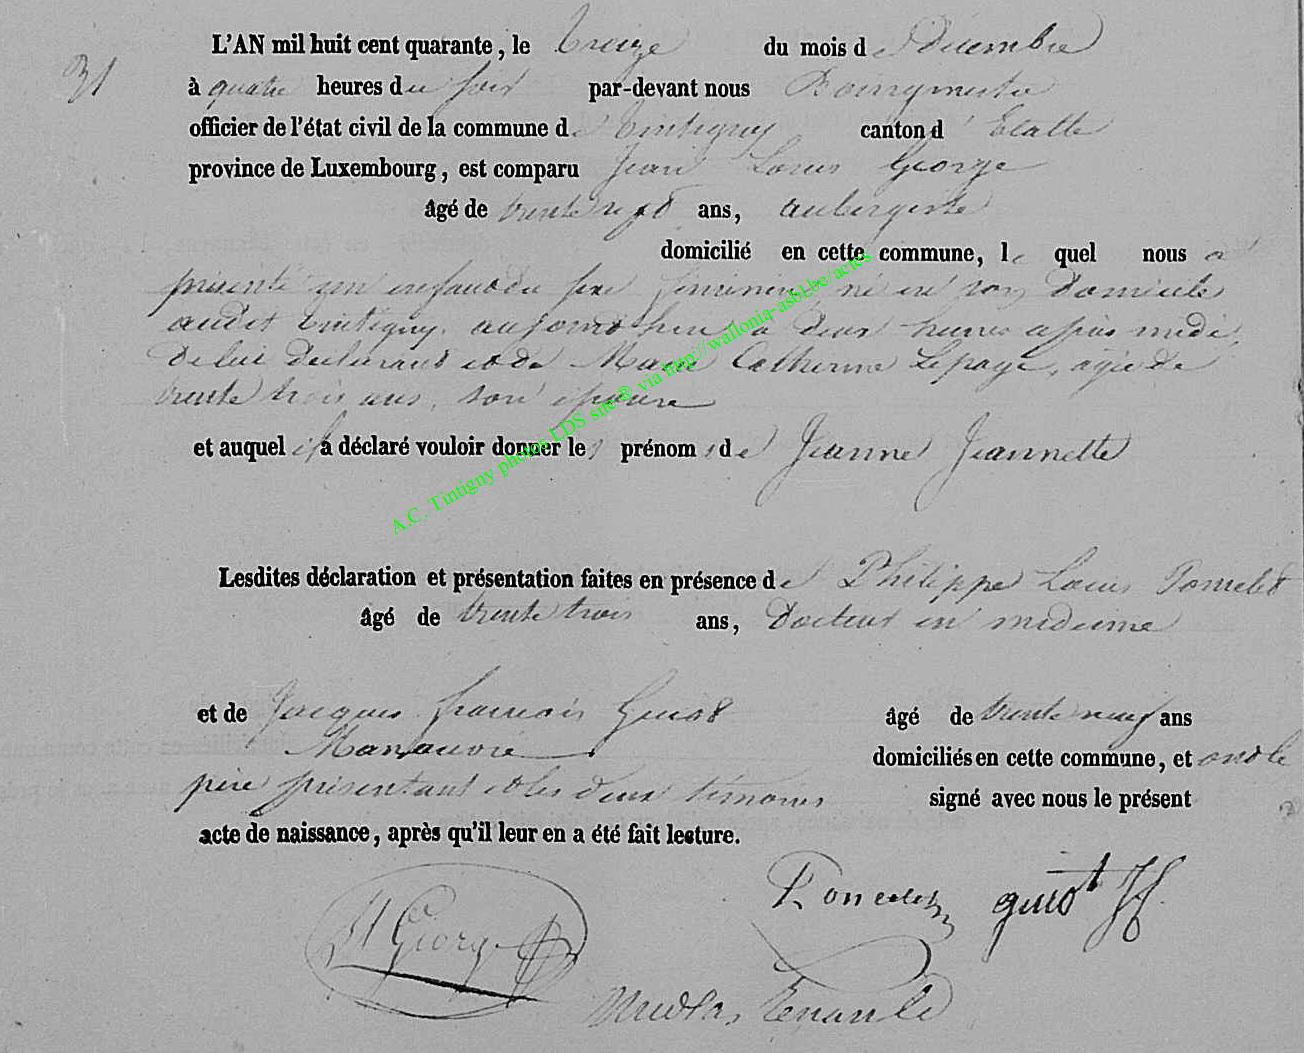 L'AN mil huit cent quarante, le treize du mois de Décembre
31
à quatre heures du soir par-devant nous Bourgmestre
officier de l'état civil de la commune de Tintigny canton d' Etalle
province de Luxembourg, est comparu Jean Louis George
âgé de trente sept ans, aubergiste
domicilié en cette commune, le quel nous a
présenté un enfant du sexe féminin né en son domicile
audit Tintigny, aujourd'hui à deux heures après midi,
de lui déclarant et de Marie Catherine Lepage, agée de
trente trois ans, son épouse
et auquel il a déclaré vouloir donner les prénoms de Jeanne Jeannette
Lesdites déclaration et présentation faites en présence de Philippe Louis Poncelet
âgé de trente trois ans, Docteur en médecine
et de Jacques françois Guiot âgé de trente neuf ans
Manœuvre domiciliés en cette commune, et ont le
père présentant et les deux témoins signé avec nous le présent
acte de naissance, après qu'il leur en a été fait lecture.
Poncelet guiot JF
George
A.C. Tintigny photos LDS site® via http://wallonia-asbl.be/actes